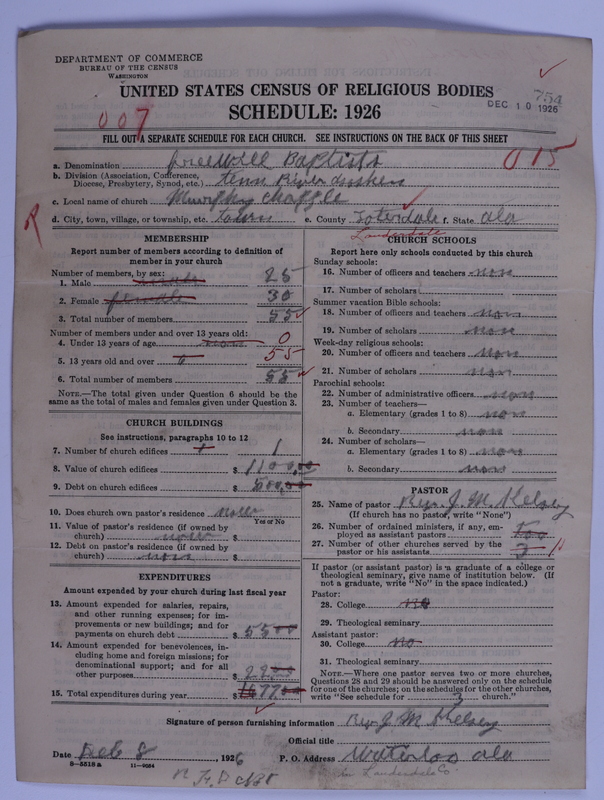 DEPARTMENT OF COMMERCE
BUREAU OF THE CENSUS
WASHINGTON
UNITED STATES CENSUS OF RELIGIOUS BODIES
SCHEDULE: 1926
754
DEC 10 1926
007
FILL OUT A SEPARATE SCHEDULE FOR EACH CHURCH. SEE INSTRUCTIONS ON THE BACK OF THIS SHEET
a. Denomination freewill Baptists 015
b. Division (Association, Conference, Diocese, Presbytery, Synod, etc.) tenn River
c. Local name of church Murphy chapple
d. City, town, village, or township, etc. town e. County f. State ala
Lauderdale
R
MEMBERSHIP
Report number of members according to definition of
member in your church
Number of members, by sex:
1. Male male 25
2. Female female 30
3. Total number of members 55
Number of members under and over 13 years old:
4. Under 13 years of age non 0
5. 13 years old and over 0 55
6. Total number of members 55
NOTE.—The total given under Question 6 should be the
same as the total of males and females given under Question 3.
CHURCH BUILDINGS
See instructions, paragraphs 10 to 12
7. Number of church edifices 1 1
8. Value of church edifices $ 1100.00
9. Debt on church edifices $ 500.00
10. Does church own pastor's residence
Yes or No
11. Value of pastor's residence (if owned by
church) $
12. Debt on pastor's residence (if owned by
church) non $
EXPENDITURES
Amount expended by your church during last fiscal year
13. Amount expended for salaries, repairs,
and other running expenses; for im-
provements or new buildings; and for
payments on church debt $ 55 00
14. Amount expended for benevolences, in-
cluding home and foreign missions; for
denominational support; and for all
other purposes $ 22.00
15. Total expenditures during year $ 77.00
CHURCH SCHOOLS
Report here only schools conducted by this church
Sunday schools:
16. Number of officers and teachers non
17. Number of scholars
Summer vacation Bible schools:
18. Number of officers and teachers non
19. Number of scholars non
Week-day religious schools:
20. Number of officers and teachers non
21. Number of scholars non
Parochial schools:
22. Number of administrative officers non
23. Number of teachers—
a. Elementary (grades 1 to 8) non
b. Secondary non
24. Number of scholars—
a. Elementary (grades 1 to 8) non
b. Secondary non
PASTOR
25. Name of pastor Rev. J. M. Kelsey
(If church has no pastor, write "None")
26. Number of ordained ministers, if any, em-
ployed as assistant pastors
27. Number of other churches served by the
pastor or his assistants 3
If pastor (or assistant pastor) is a graduate of a college or
theological seminary, give name of institution below. (If
not a graduate, write "No" in the space indicated.)
Pastor:
28. College no
29. Theological seminary
Assistant pastor:
30. College no
31. Theological seminary
NOTE.—Where one pastor serves two or more churches,
Questions 28 and 29 should be answered only on the schedule
for one of the churches; on the schedules for the other churches,
write "See schedule for 3 church."
Signature of person furnishing information Rev. J M Kelsey
Official title
Date Feb 8 1926 P. O. Address Waterloo ala
8-5518 a 11-9034
in Lauderdale Co.